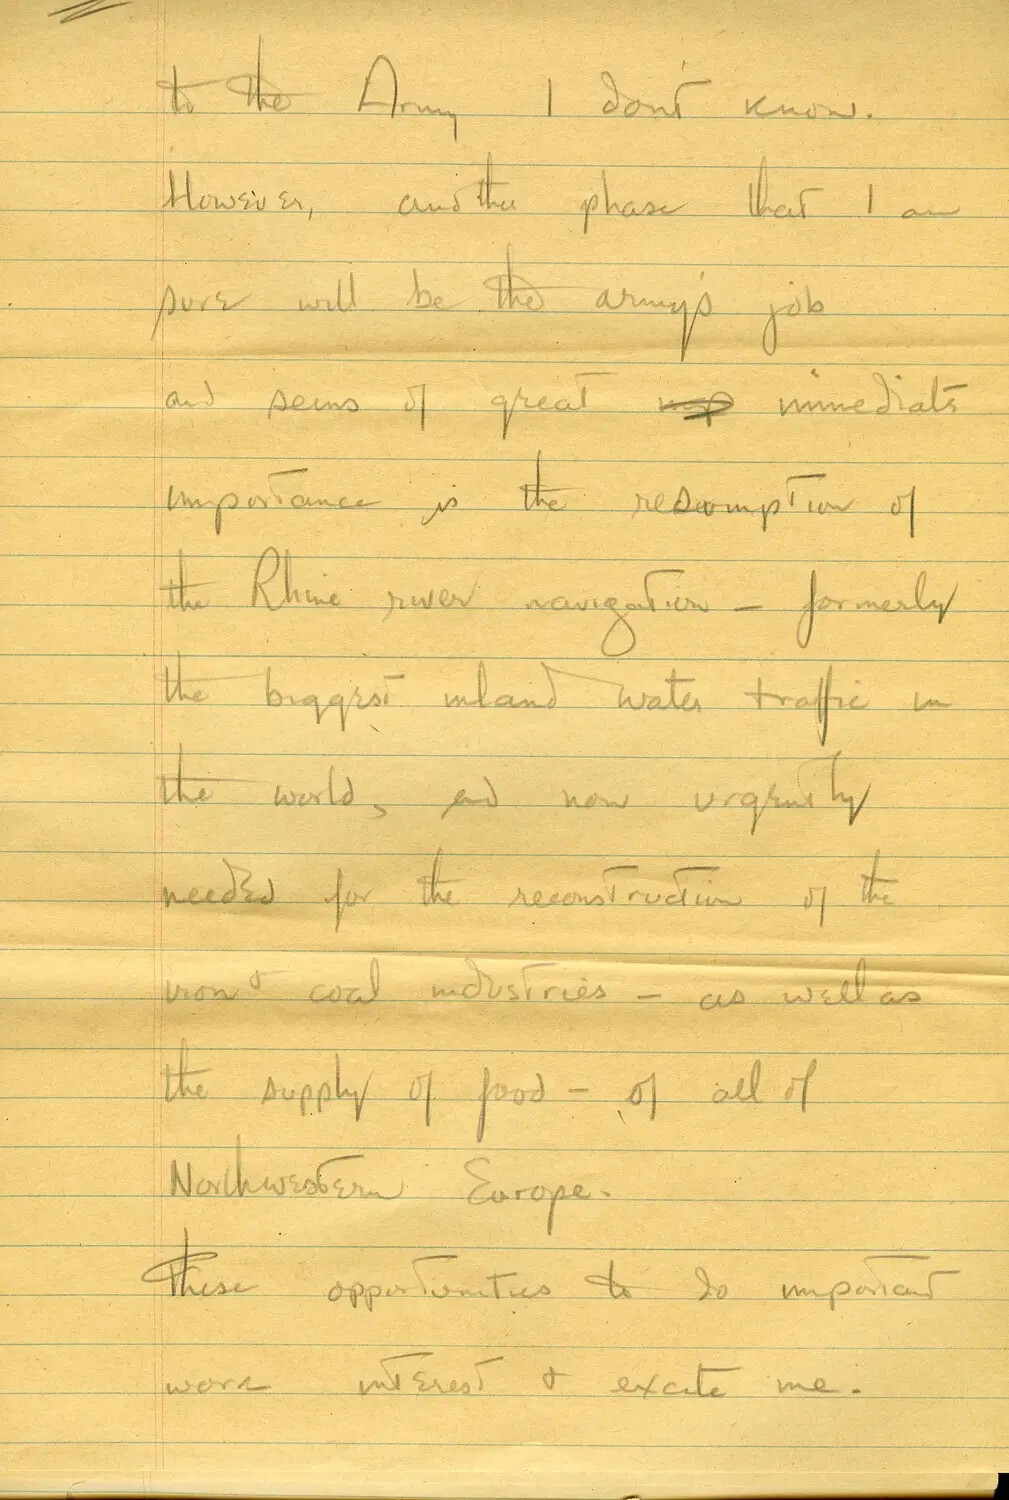 to the Army I don't know.
However, another phase that I am
sure will be the army's job
and seems of great immediate
importance is the resumption of
the Rhine river navigation – formerly
the biggest inland water traffic in
the world, and now urgently
needed for the reconstruction of the
iron & coal industries – as well as
the supply of food – of all of
Northwestern Europe.
These opportunities to do important
work interest & excite me.